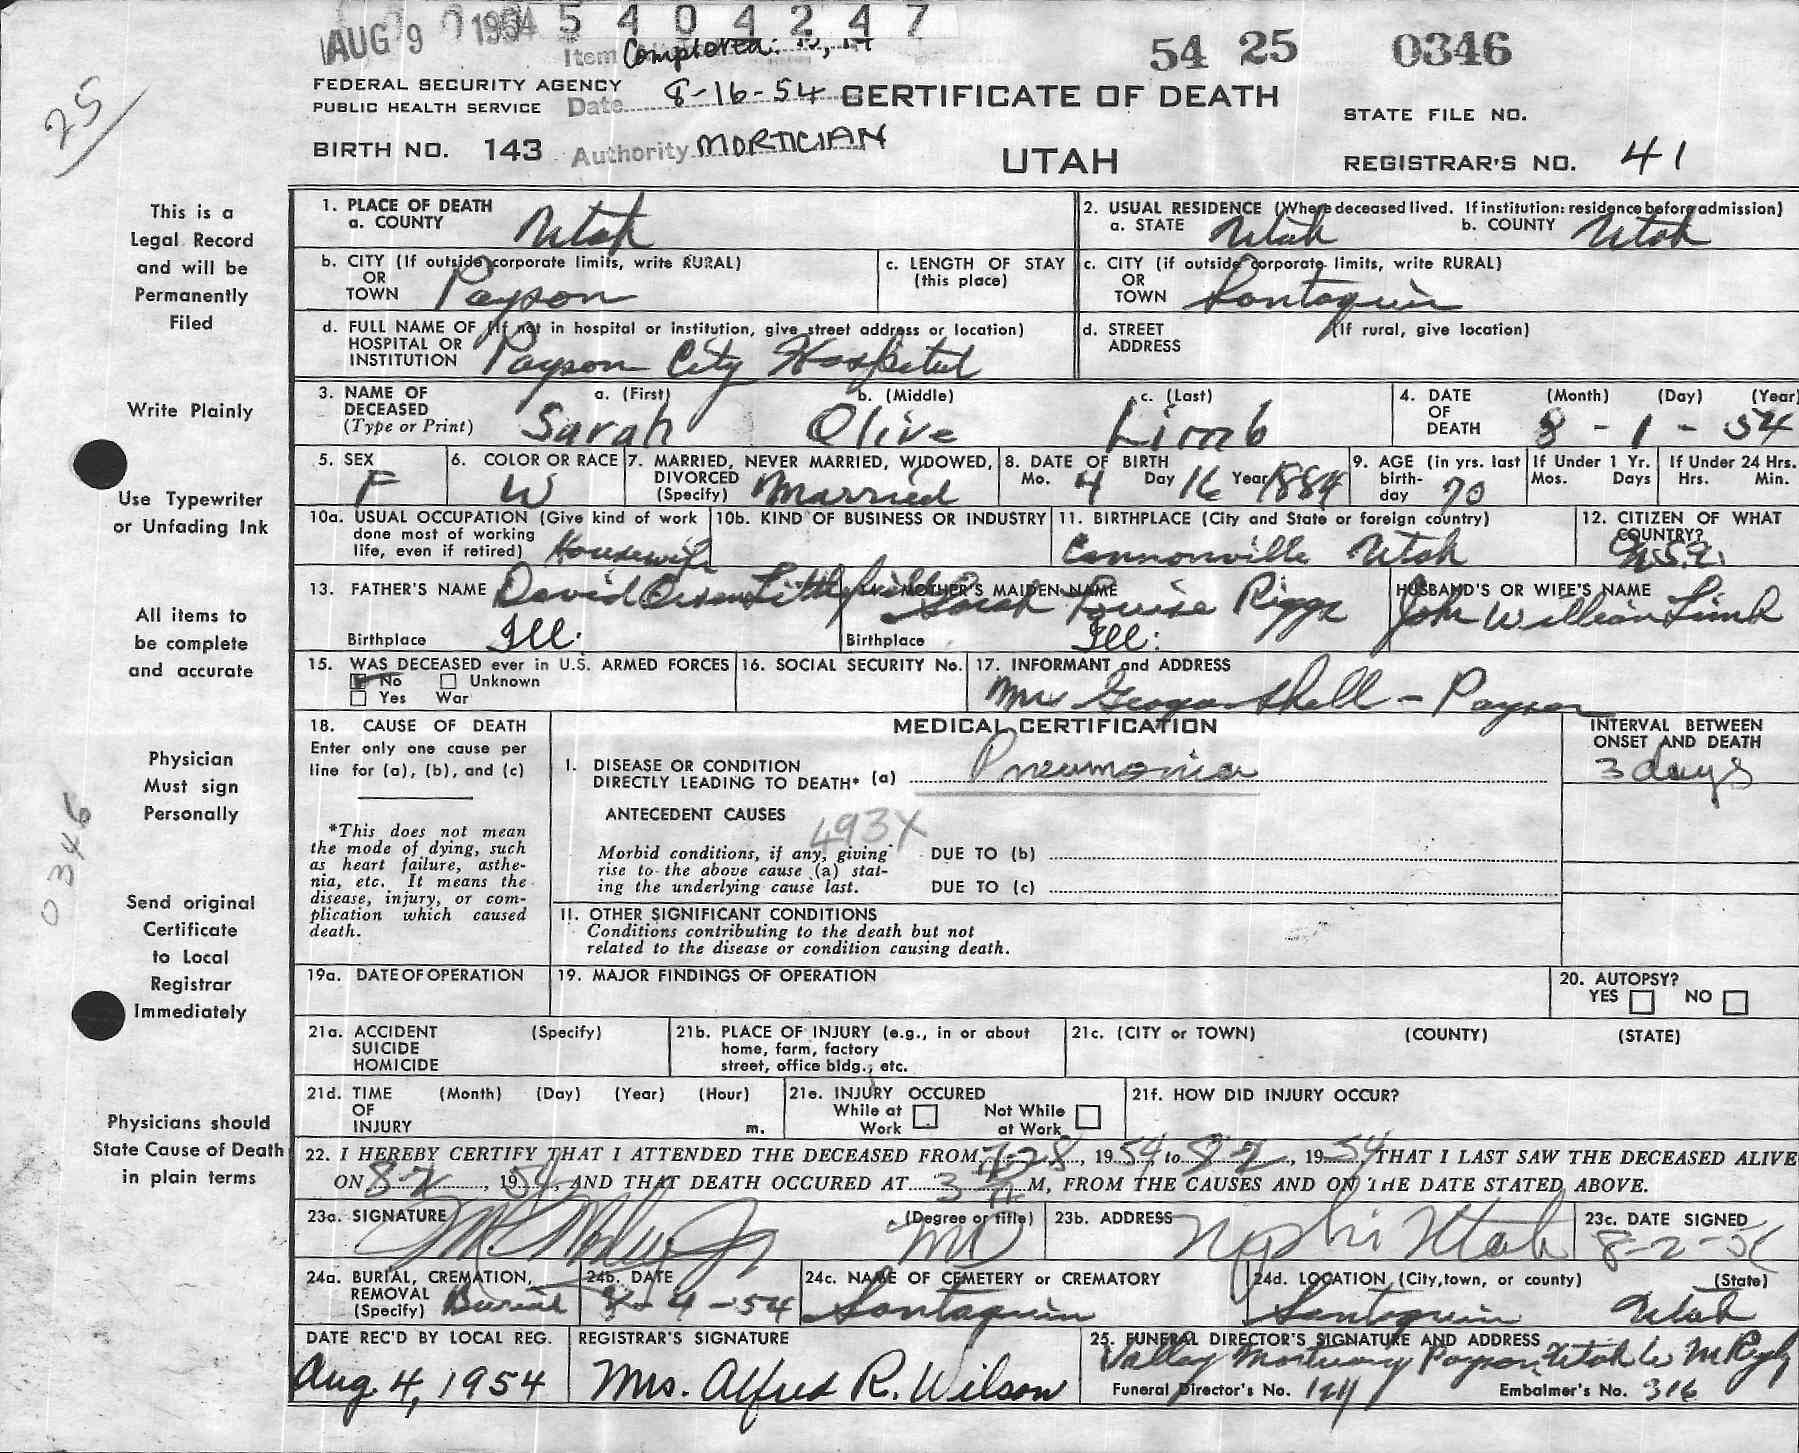 AUG 9 1954 5 4 0 4 2 4 7
Item Completed: 13, 14
54 25 0346
25
FEDERAL SECURITY AGENCY
PUBLIC HEALTH SERVICE
Date 8-16-54
CERTIFICATE OF DEATH
STATE FILE NO.
BIRTH NO. 143 Authority MORTICIAN
UTAH
REGISTRAR'S NO. 41
This is a
Legal Record
and will be
Permanently
Filed
Write Plainly
Use Typewriter
or Unfading Ink
All items to
be complete
and accurate
Physician
Must sign
Personally
0346
Send original
Certificate
to Local
Registrar
Immediately
Physicians should
State Cause of Death
in plain terms
1. PLACE OF DEATH
a. COUNTY Utah
2. USUAL RESIDENCE (Where deceased lived. If institution: residence before admission)
a. STATE Utah b. COUNTY Utah
b. CITY (If outside corporate limits, write RURAL)
OR
TOWN Payson
c. LENGTH OF STAY
(this place)
c. CITY (if outside corporate limits, write RURAL)
OR
TOWN Santaquin
d. FULL NAME OF (If not in hospital or institution, give street address or location)
HOSPITAL OR
INSTITUTION Payson City Hospital
d. STREET (If rural, give location)
ADDRESS
3. NAME OF
DECEASED
(Type or Print)
a. (First) b. (Middle) c. (Last)
Sarah Olive Limb
4. DATE
OF
DEATH
(Month) (Day) (Year)
8 - 1 - 54
5. SEX
F
6. COLOR OR RACE
W
7. MARRIED, NEVER MARRIED, WIDOWED,
DIVORCED
(Specify) Married
8. DATE OF BIRTH
Mo. 4 Day 16 Year 1884
9. AGE (in yrs. last
birth-
day 70
If Under 1 Yr.
Mos. Days
If Under 24 Hrs.
Hrs. Min.
10a. USUAL OCCUPATION (Give kind of work
done most of working
life, even if retired) Housewife
10b. KIND OF BUSINESS OR INDUSTRY
11. BIRTHPLACE (City and State or foreign country)
Cannonville Utah
12. CITIZEN OF WHAT
COUNTRY?
U.S.A.
13. FATHER'S NAME David Orson Littlefield
Birthplace Ill.
14. MOTHER'S MAIDEN NAME Sarah Louise Riggs
Birthplace Ill.
HUSBAND'S OR WIFE'S NAME
John William Limb
15. WAS DECEASED ever in U.S. ARMED FORCES
No Unknown
Yes War
16. SOCIAL SECURITY No.
17. INFORMANT and ADDRESS
Mrs George Shell - Payson
18. CAUSE OF DEATH
Enter only one cause per
line for (a), (b), and (c)
*This does not mean
the mode of dying, such
as heart failure, asthe-
nia, etc. It means the
disease, injury, or com-
plication which caused
death.
MEDICAL CERTIFICATION
INTERVAL BETWEEN
ONSET AND DEATH
I. DISEASE OR CONDITION
DIRECTLY LEADING TO DEATH* (a) Pneumonia
3 days
ANTECEDENT CAUSES
493X
Morbid conditions, if any, giving
rise to the above cause (a) stat-
ing the underlying cause last.
DUE TO (b)
DUE TO (c)
II. OTHER SIGNIFICANT CONDITIONS
Conditions contributing to the death but not
related to the disease or condition causing death.
19a. DATE OF OPERATION
19. MAJOR FINDINGS OF OPERATION
20. AUTOPSY?
YES NO
21a. ACCIDENT (Specify)
SUICIDE
HOMICIDE
21b. PLACE OF INJURY (e.g., in or about
home, farm, factory
street, office bldg., etc.
21c. (CITY or TOWN) (COUNTY) (STATE)
21d. TIME (Month) (Day) (Year) (Hour)
OF
INJURY m.
21e. INJURY OCCURED
While at Work
Not While at Work
21f. HOW DID INJURY OCCUR?
22. I HEREBY CERTIFY THAT I ATTENDED THE DECEASED FROM 7-28, 1954 to 8-2, 1954 THAT I LAST SAW THE DECEASED ALIVE
ON 8-2, 1954, AND THAT DEATH OCCURED AT 3 M, FROM THE CAUSES AND ON THE DATE STATED ABOVE.
23a. SIGNATURE (Degree or title)
MD
23b. ADDRESS Nephi Utah
23c. DATE SIGNED
8-2-54
24a. BURIAL, CREMATION,
REMOVAL
(Specify) Burial
24b. DATE
8-4-54
24c. NAME OF CEMETERY or CREMATORY
Santaquin
24d. LOCATION (City, town, or county) (State)
Santaquin Utah
DATE REC'D BY LOCAL REG.
Aug. 4, 1954
REGISTRAR'S SIGNATURE
Mrs. Alfred R. Wilson
25. FUNERAL DIRECTOR'S SIGNATURE AND ADDRESS
Valley Mortuary Payson Utah
Funeral Director's No. Embalmer's No. 316